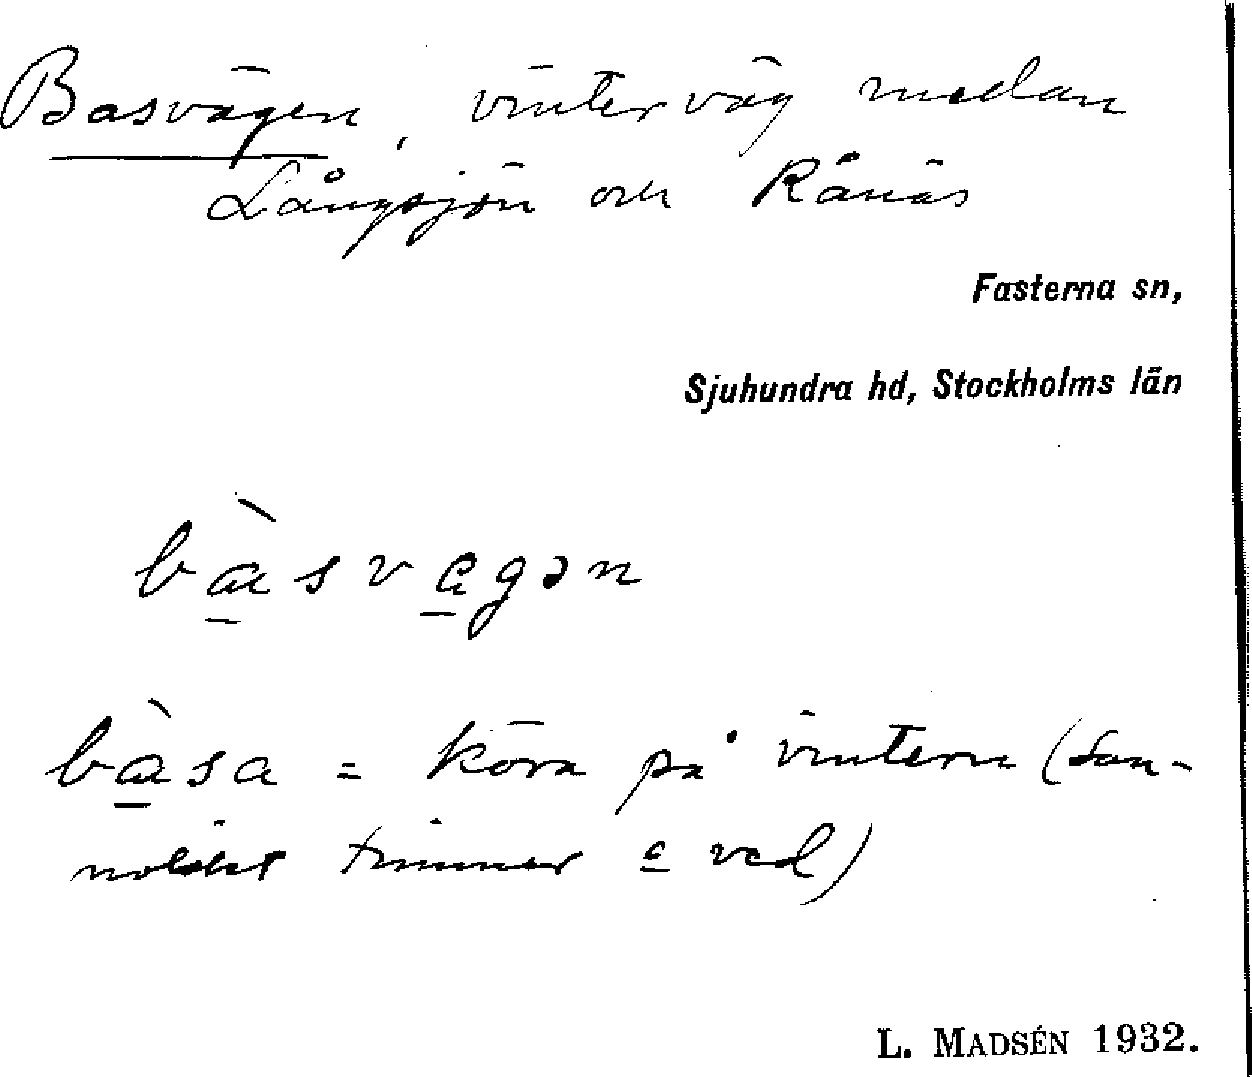 Basvägen, vinterväg medan
Långsjön och Rånäs
Fasterna sn,
Sjuhundra hd, Stockholms län
bàsvagən
bàsa = köra på vintern (San-
nolikt timmer o ved)
L. MADSÉN 1932.